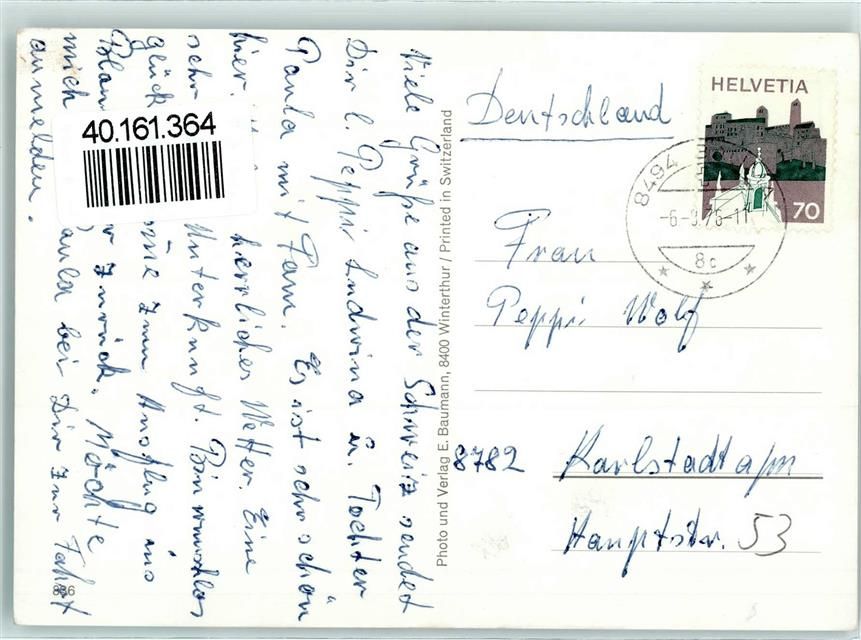 Viele Grüße aus der Schweiz sendet
Dir l. Peppi Ludwina u. Tochter
Paula mit Fam. Es ist sehr schön
hier. herrliches Wetter. Eine
sehr Unterkunft. Bin
glück zum Ausflug ins
zurück. Möchte
mich bei Dir zur Fahrt
anmelden.
40.161.364
886
Photo und Verlag E. Baumann, 8400 Winterthur / Printed in Switzerland
HELVETIA
70
8494
-6.-9.76-11
8c
Deutschland
Frau
Peppi Wolf
8782 Karlstadt a/m
Hauptstr. 53